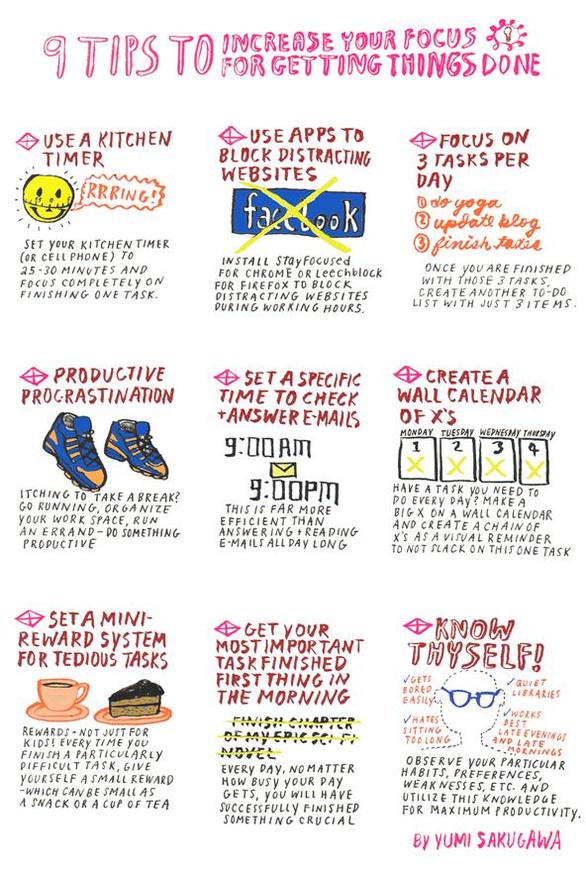 9 TIPS TO INCREASE YOUR FOCUS
FOR GETTING THINGS DONE
USE A KITCHEN
TIMER
RRRING!
SET YOUR KITCHEN TIMER
(OR CELL PHONE) TO
25-30 MINUTES AND
FOCUS COMPLETELY ON
FINISHING ONE TASK.
USE APPS TO
BLOCK DISTRACTING
WEBSITES
facebook
INSTALL StayFocused
FOR CHROME OR Leechblock
FOR FIREFOX TO BLOCK
DISTRACTING WEBSITES
DURING WORKING HOURS.
FOCUS ON
3 TASKS PER
DAY
1 do yoga
2 update blog
3 finish taxes
ONCE YOU ARE FINISHED
WITH THOSE 3 TASKS,
CREATE ANOTHER TO-DO
LIST WITH JUST 3 ITEMS.
PRODUCTIVE
PROCRASTINATION
ITCHING TO TAKE A BREAK?
GO RUNNING, ORGANIZE
YOUR WORK SPACE, RUN
AN ERRAND - DO SOMETHING
PRODUCTIVE
SET A SPECIFIC
TIME TO CHECK
+ ANSWER E-MAILS
9:00AM
9:00PM
THIS IS FAR MORE
EFFICIENT THAN
ANSWERING + READING
E-MAILS ALL DAY LONG
CREATE A
WALL CALENDAR
OF X'S
MONDAY TUESDAY WEDNESDAY THURSDAY
1 2 3 4
X X X X
HAVE A TASK YOU NEED TO
DO EVERY DAY? MAKE A
BIG X ON A WALL CALENDAR
AND CREATE A CHAIN OF
X'S AS A VISUAL REMINDER
TO NOT SLACK ON THIS ONE TASK
SET A MINI-
REWARD SYSTEM
FOR TEDIOUS TASKS
REWARDS - NOT JUST FOR
KIDS! EVERY TIME YOU
FINISH A PARTICULARLY
DIFFICULT TASK, GIVE
YOURSELF A SMALL REWARD
-WHICH CAN BE SMALL AS
A SNACK OR A CUP OF TEA
GET YOUR
MOST IMPORTANT
TASK FINISHED
FIRST THING IN
THE MORNING
FINISH CHAPTER
OF MY EPIC SCI-FI
NOVEL
EVERY DAY, NO MATTER
HOW BUSY YOUR DAY
GETS, YOU WILL HAVE
SUCCESSFULLY FINISHED
SOMETHING CRUCIAL
KNOW
THYSELF!
✓GETS
BORED
EASILY
✓HATES
SITTING
TOO LONG
✓QUIET
LIBRARIES
✓WORKS
BEST
LATE EVENINGS
AND LATE
MORNINGS
OBSERVE YOUR PARTICULAR
HABITS, PREFERENCES,
WEAKNESSES, ETC. AND
UTILIZE THIS KNOWLEDGE
FOR MAXIMUM PRODUCTIVITY.
BY YUMI SAKUGAWA